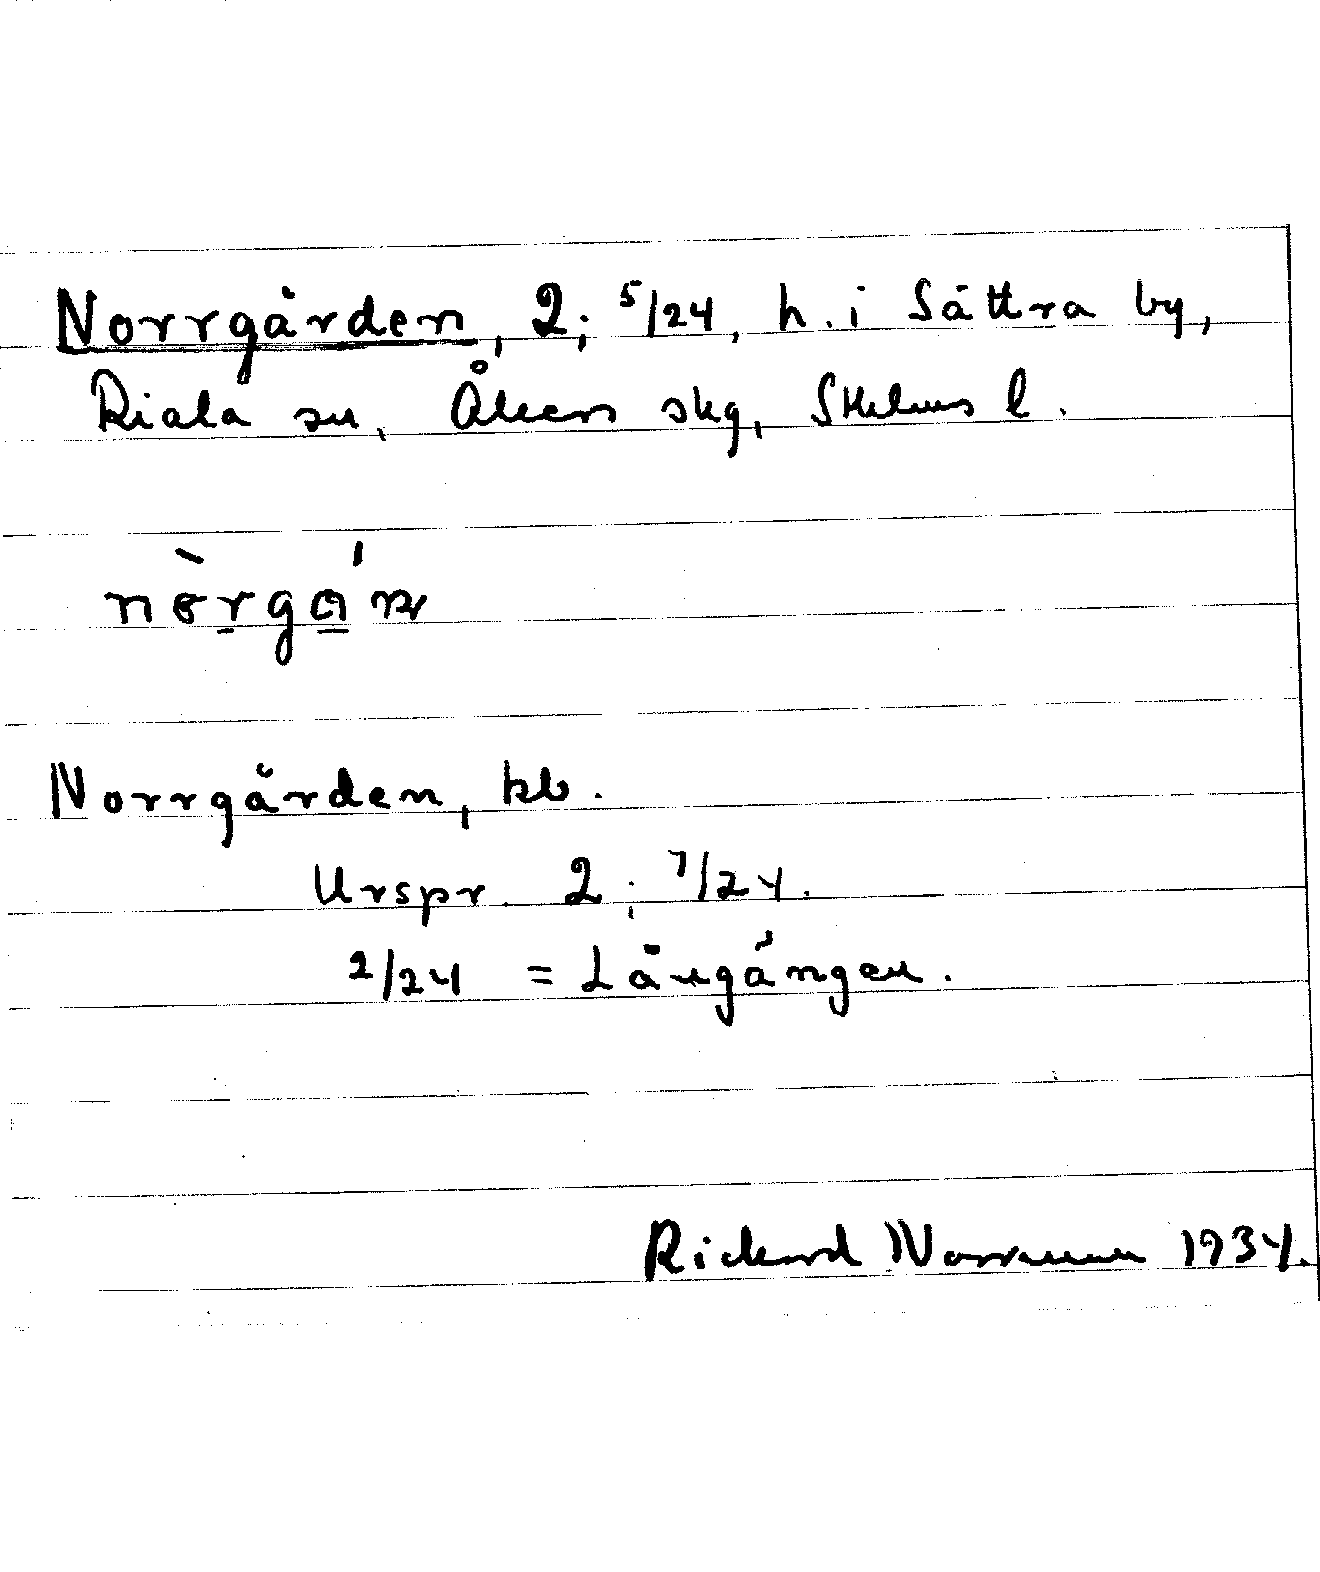 Norrgården, 2; 5/24, h. i Sättra by,
Riala sn, Åkers skg, Sthlms l.
nòrgán
Norrgården, kb.
Urspr. 2; 7/24.
2/24 = Långängen.
Rickard Norrman 1934.